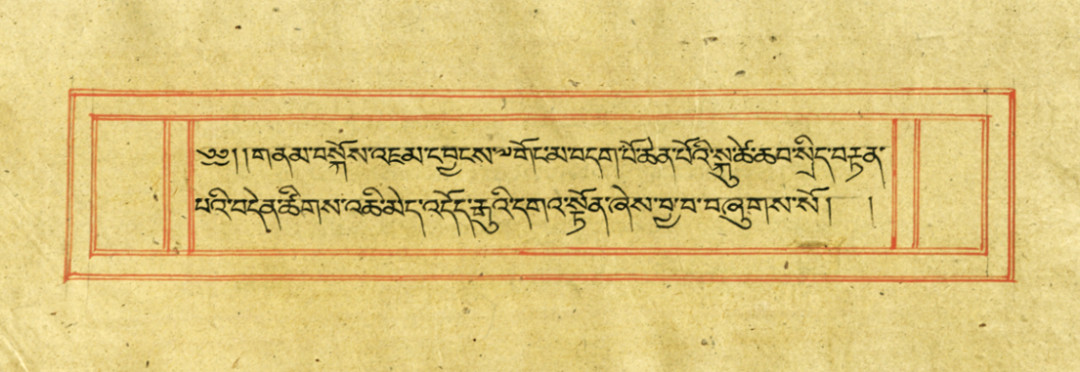 ༄༅།།གནམ་བསྐོས་འཇམ་དབྱངས་༧གོང་མ་བདག་པོ་ཆེན་པོའི་སྐུ་ཚེ་ཆབ་སྲིད་བརྟན་
པའི་བདེན་ཚིགས་འཆི་མེད་འདོད་རྒུའི་དགའ་སྟོན་ཞེས་བྱ་བ་བཞུགས་སོ། །